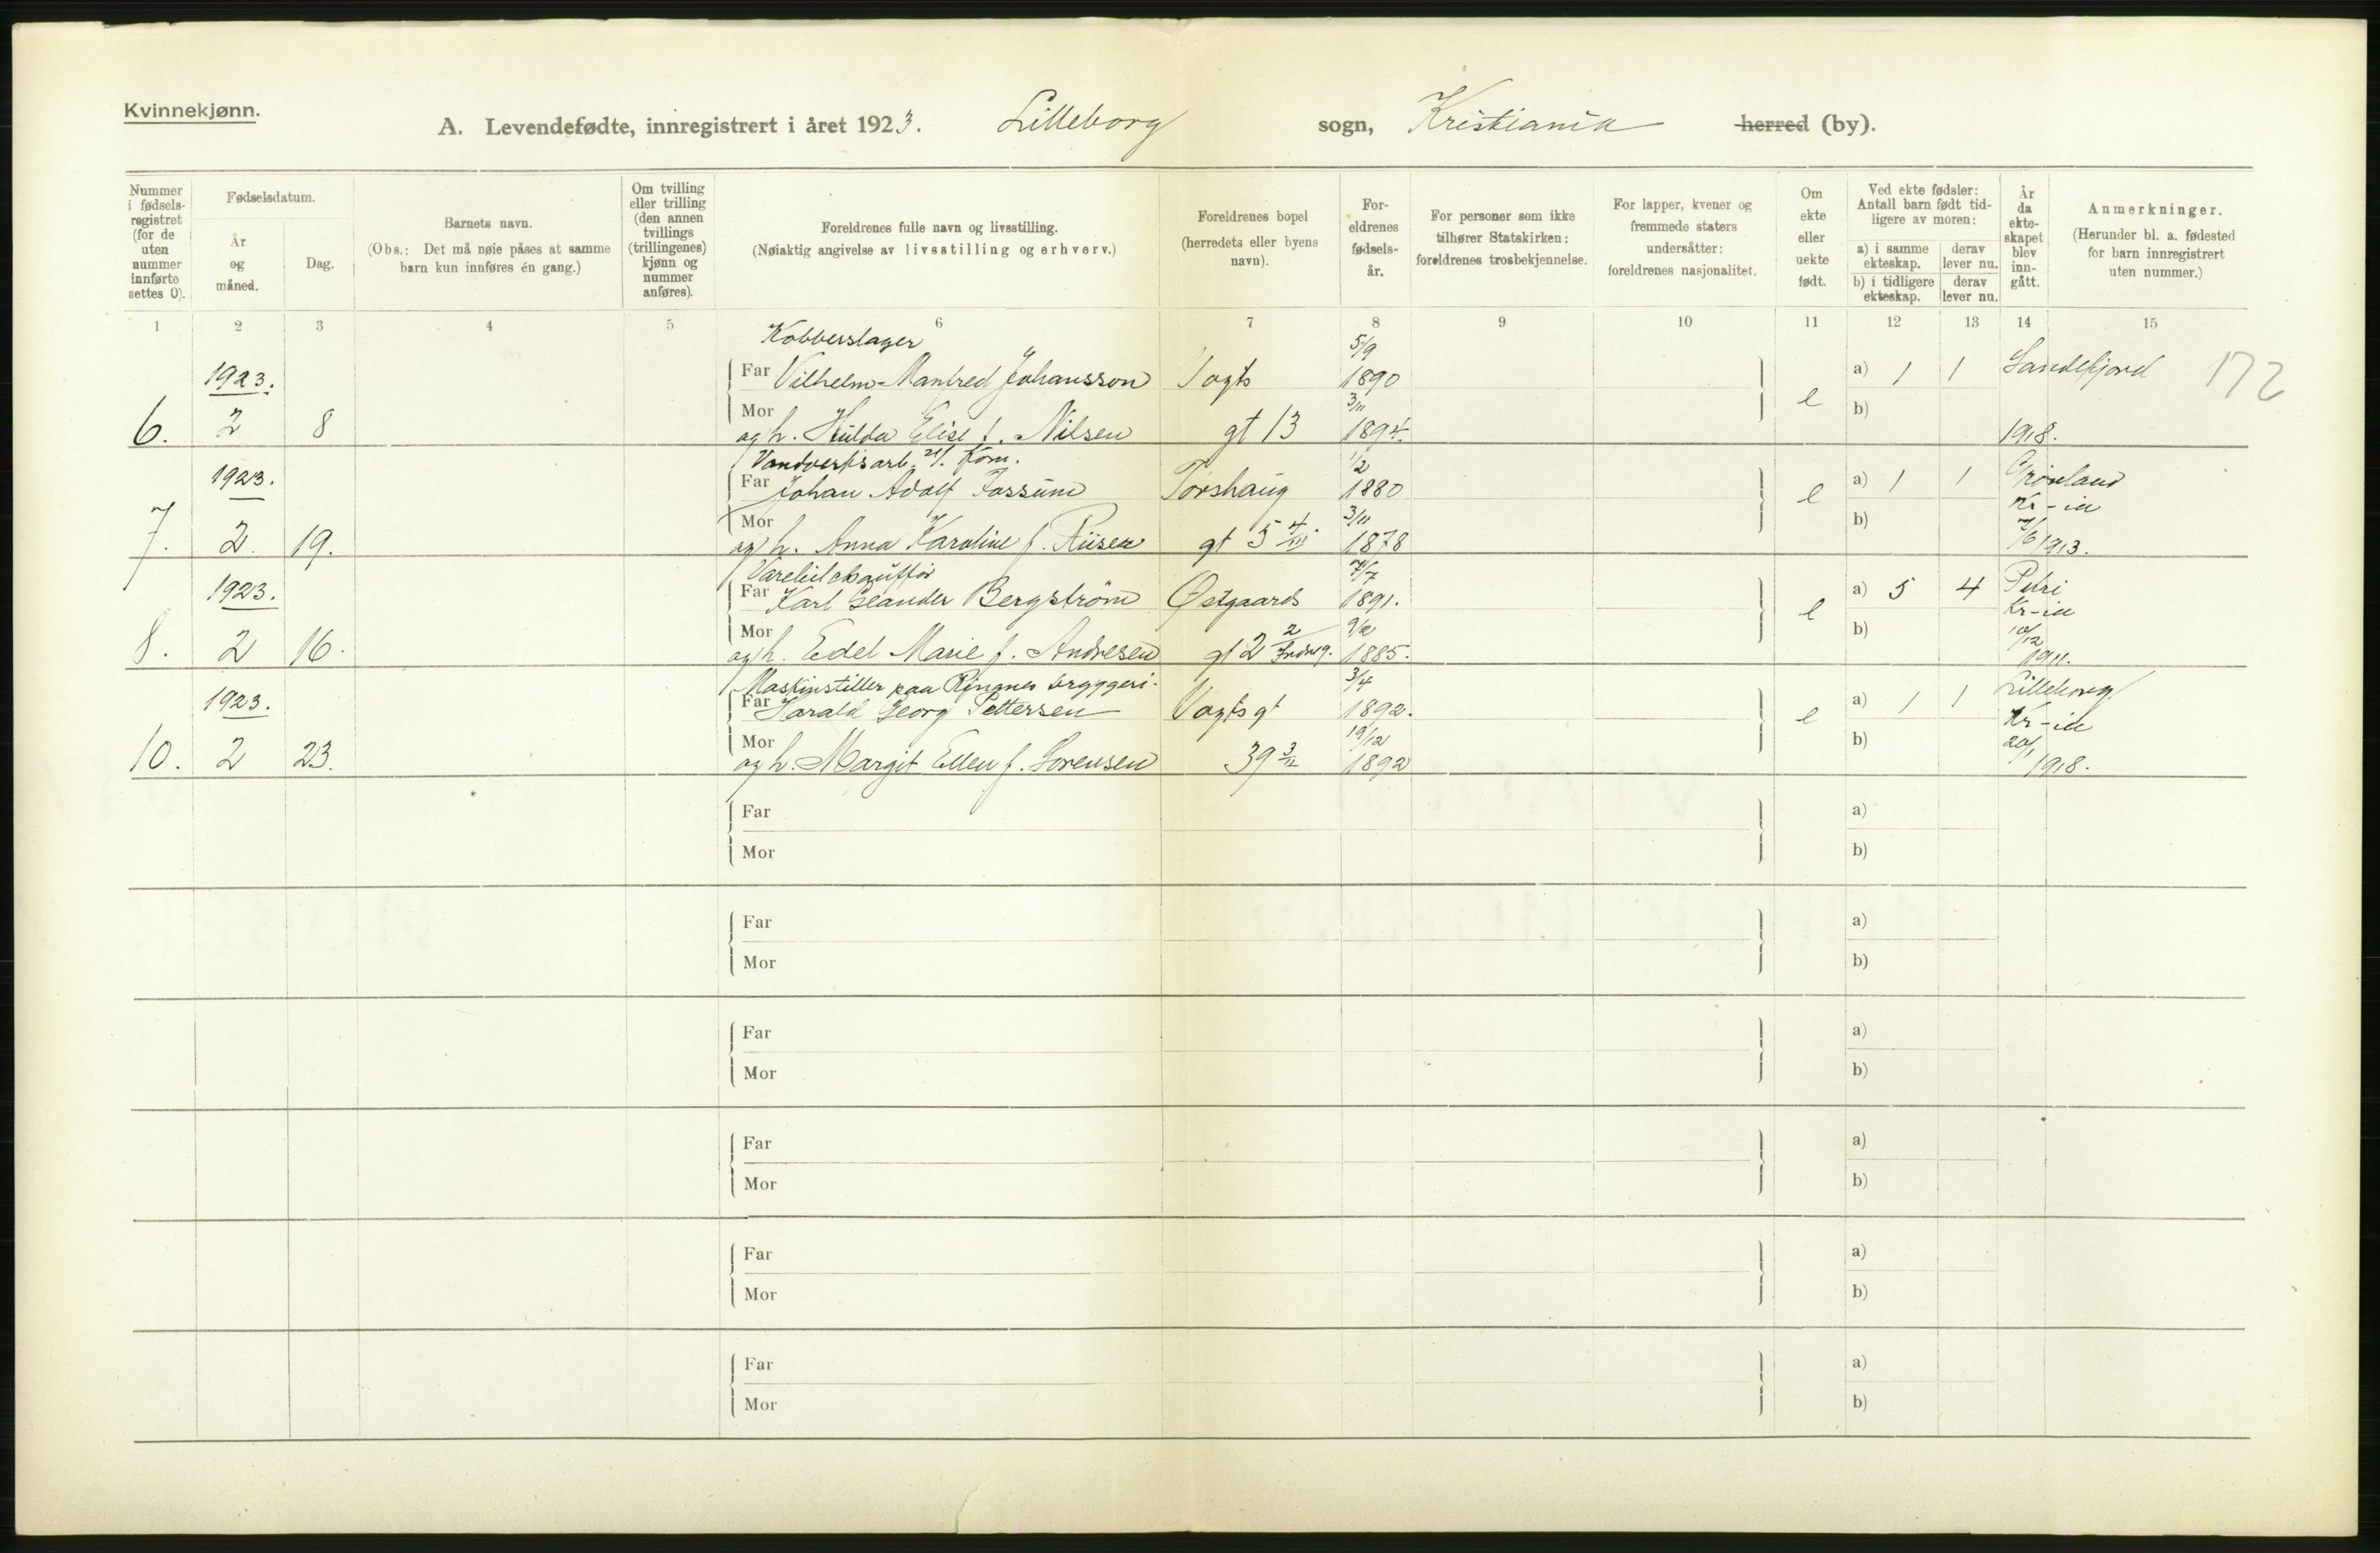 Kvinnekjønn.
A. Levendefødte, innregistrert i året 1923. Lilleborg sogn, Kristiania herred (by).
Nummer i fødsels-registret (for de uten nummer innførte settes 0).
Fødselsdatum.
År og måned.
Dag.
Barnets navn.
(Obs.: Det må nøie påses at samme barn kun innføres én gang.)
Om tvilling eller trilling (den annen tvillings (trillingenes) kjønn og nummer anføres).
Foreldrenes fulle navn og livsstilling.
(Nøiaktig angivelse av livsstilling og erhverv.)
Foreldrenes bopel (herredets eller byens navn).
For-eldrenes fødsels-år.
For personer som ikke tilhører Statskirken: foreldrenes trosbekjennelse.
For lapper, kvener og fremmede staters undersåtter: foreldrenes nasjonalitet.
Om ekte eller uekte født.
Ved ekte fødsler: Antall barn født tid-ligere av moren:
a) i samme ekteskap.
derav lever nu.
b) i tidligere ekteskap.
derav lever nu.
År da ekte-skapet blev inn-gått.
Anmerkninger.
(Herunder bl. a. fødested for barn innregistrert uten nummer.)
1 2 3 4 5 6 7 8 9 10 11 12 13 14 15
Kobberslager 5/9
1923. Far Vilhelm Manfred Johansson Vogts 1890 e a) 1 1 Sandefjord 172
Mor 3/11 b)
6. 2 8 og h. Hulda Elise f. Nilsen gt 13 1894. 1918.
Vandverksarb. Kom. 1/2
1923. Far Johan Adolf Fossum Torshaug 1880 e a) 1 1 Grønland
Mor 3/11 b) Kr-ia
7. 2. 19. og h. Anna Karoline f. Riisen gt 5 4/III 1878 7/6 1913.
Varebilchauffør 7/7
1923. Far Karl Leander Bergstrøm Østgaards 1891. e a) 5 4 Petri
Mor 2 9/2 b) Kr-ia 10/12
8. 2 16. og h. Edel Marie f. Andresen gt 2 1885. 1911.
Maskinstiller paa Ringnes bryggeri. 3/4
1923. Far Harald Georg Pettersen Vogts gt 1892. e a) 1 1 Lilleborg
Mor 19/12 b) Kr-ia
10. 2 23. og h. Margit Ellen f. Sørensen 39 3/II 1892 20/1 1918.
Far a)
Mor b)
Far a)
Mor b)
Far a)
Mor b)
Far a)
Mor b)
Far a)
Mor b)
Far a)
Mor b)